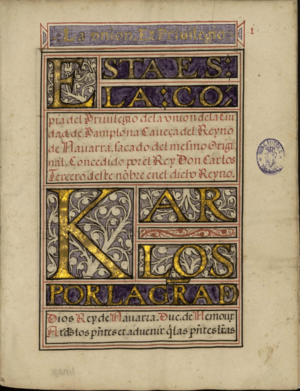 La Union, Et Privilegio
1
ESTA ES:
LA: CO:
pia del Privilegio de la union de la Ciu
dad de Pamplona Caveça del Reyno
de Navarra, sacado del mesmo Origi
nal, Concedido por el Rey Don Carlos
Tercero deste nōbre en el dicto Reyno.
KAR
LOS
POR LA GRAD
Dios Rey de Navarra. Duc. de Nemour
A todos p̄ntes et advenir q̄ las p̄ntes l̄ras